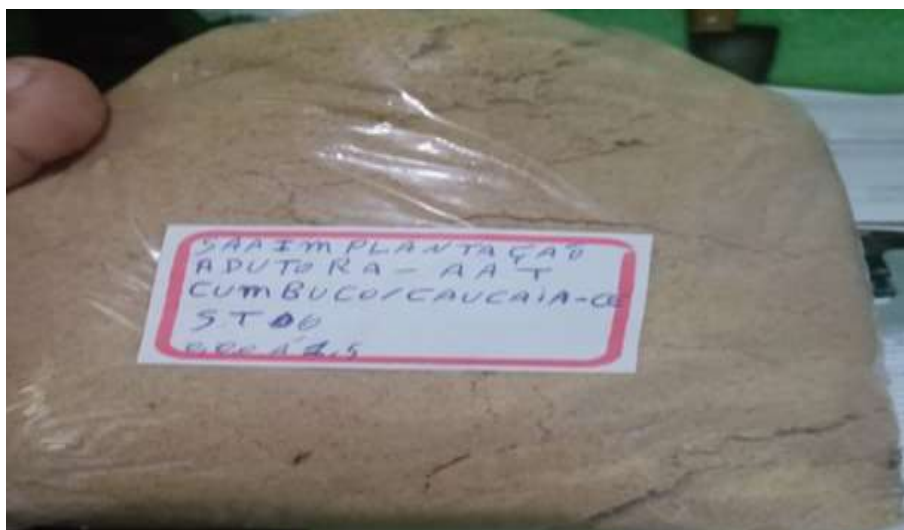 SAA IMPLANTAÇÃO
ADUTORA - AAT
CUMBUCO/CAUCAIA-CE
ST 06
0,00 A 1,5